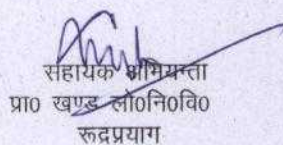 सहायक अभियन्ता
प्रा0 खण्ड लो0नि0वि0
रूद्रप्रयाग